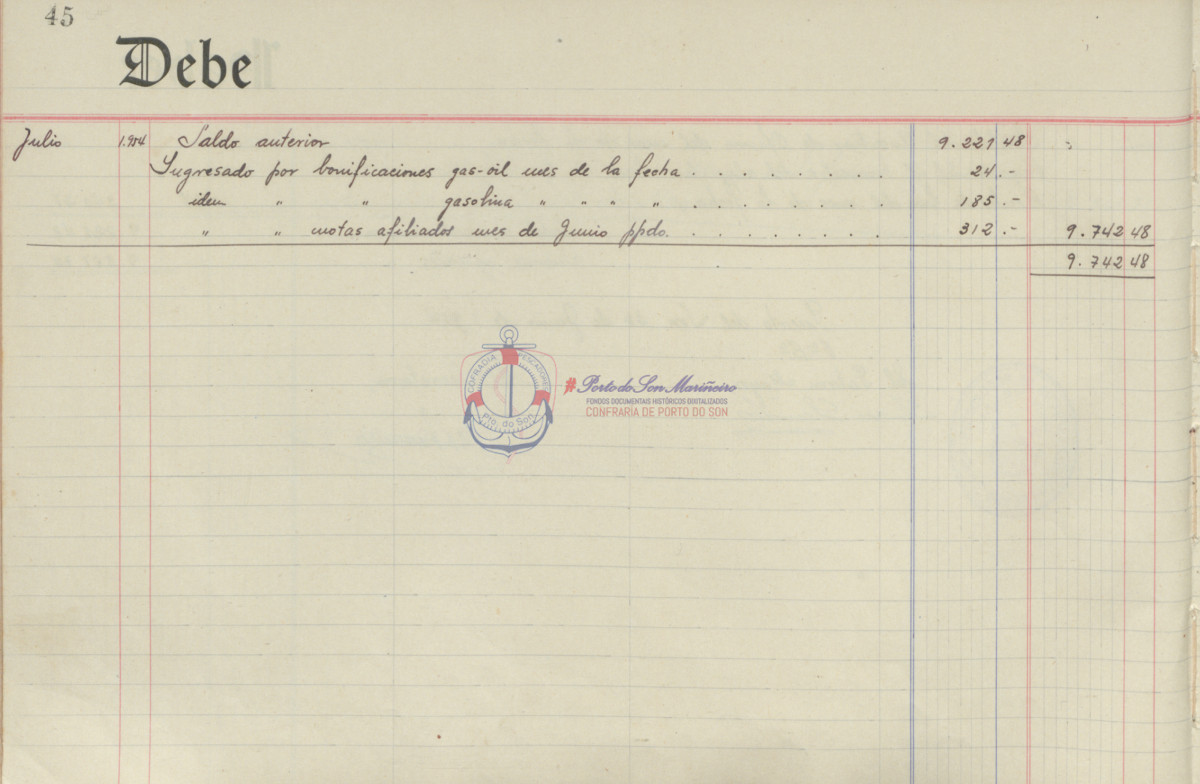 45
Debe
Julio 1.954 Saldo anterior 9.221 48 "
Ingresado por bonificaciones gas-oil mes de la fecha . . . . . . . . 24 .-
idem " " gasolina " " " " . . . . . . . . 185 .-
" " cuotas afiliados mes de Junio ppdo. . . . . . . . . 312 .- 9.742 48
9.742 48
COFRADIA PESCADORES
Pto. do Son
#Porto do Son Mariñeiro
FONDOS DOCUMENTAIS HISTÓRICOS DIXITALIZADOS
CONFRARÍA DE PORTO DO SON